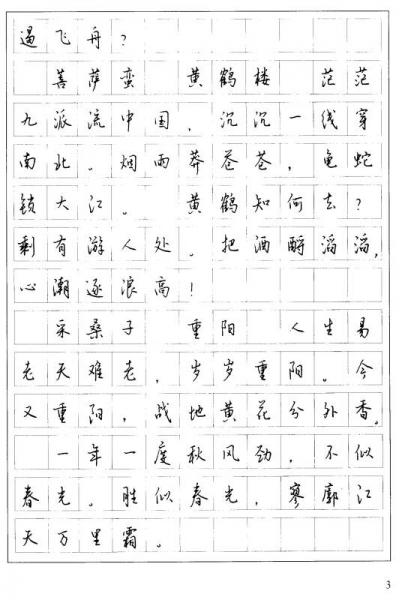 遏飞舟？
菩萨蛮 黄鹤楼 茫茫
九派流中国，沉沉一线穿
南北。烟雨莽苍苍，龟蛇
锁大江。 黄鹤知何去？
剩有游人处。把酒酹滔滔，
心潮逐浪高！
采桑子 重阳 人生易
老天难老，岁岁重阳。今
又重阳，战地黄花分外香。
一年一度秋风劲，不似
春光。胜似春光，寥廓江
天万里霜。
3